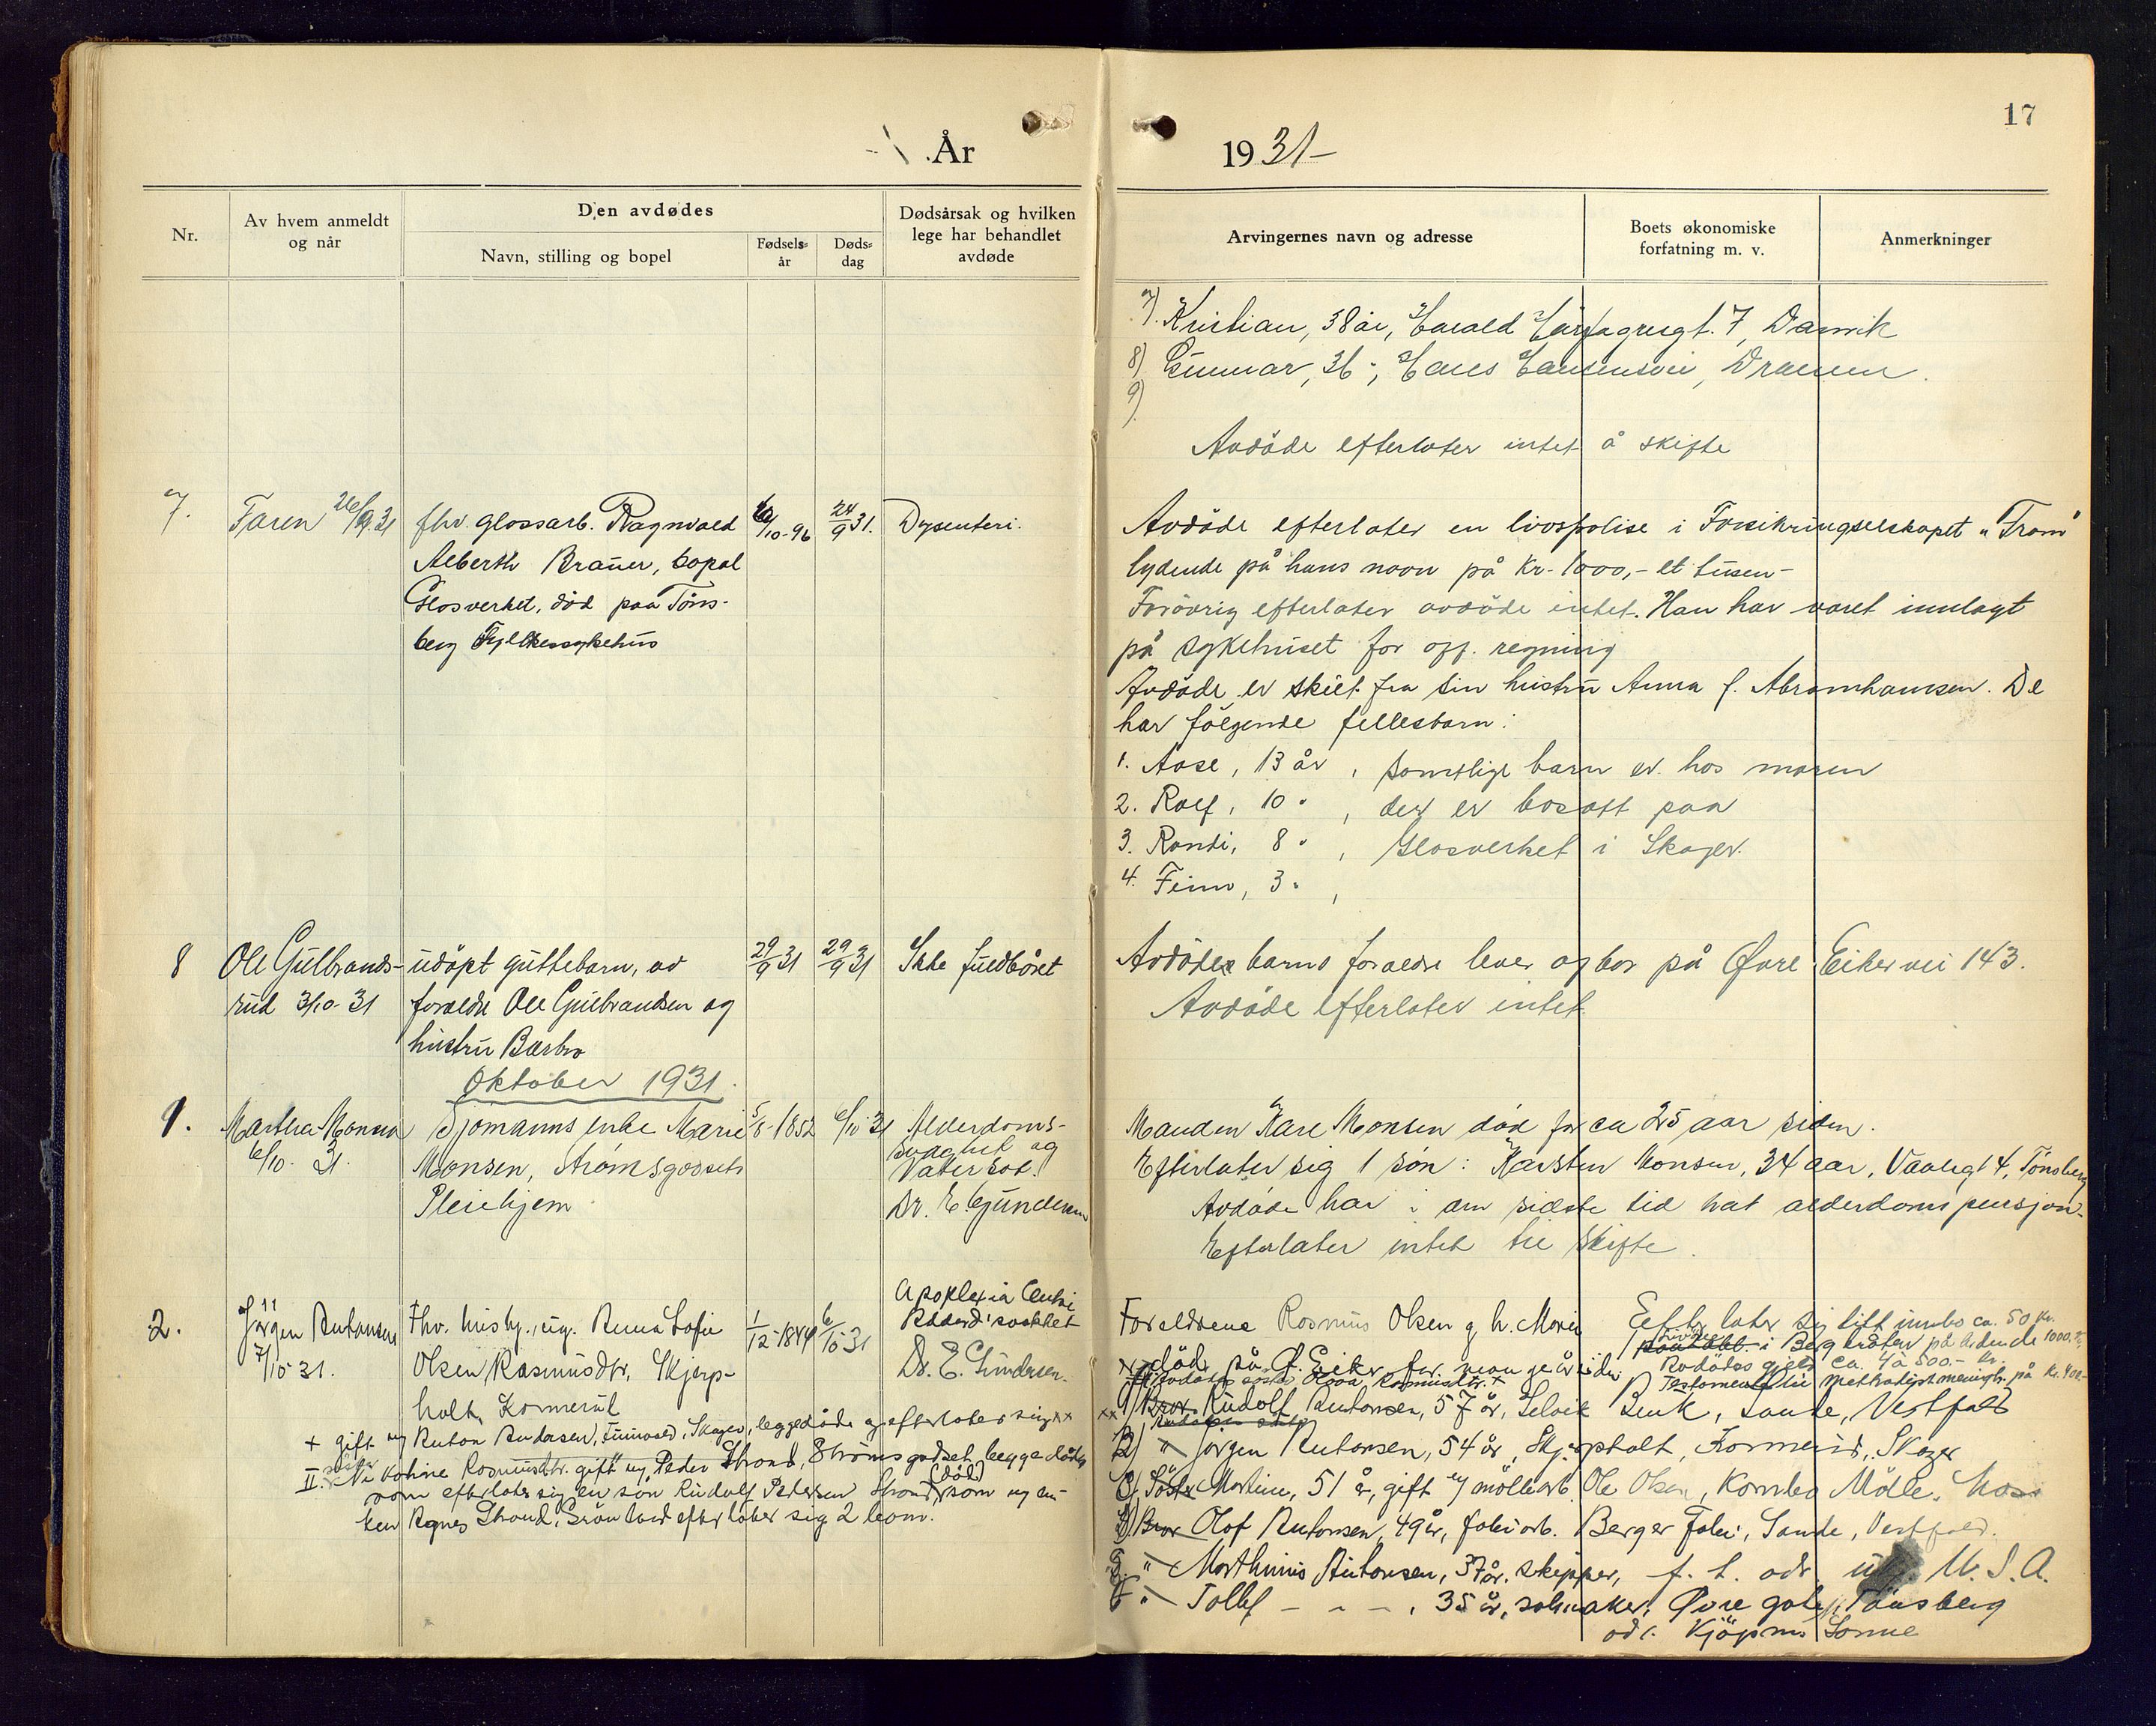 17
År 1931-
Nr.
Av hvem anmeldt
og når
Den avdødes
Navn, stilling og bopel
Fødsels-
år
Døds-
dag
Dødsårsak og hvilken
lege har behandlet
avdøde
Arvingernes navn og adresse
Boets økonomiske
forfatning m. v.
Anmerkninger
7). Kristian, 38 år, Harald Hårfagresgt. 7, Danvik
8) Gunnar, 36 ", Hans Hansensvei, Drammen.
9)
Avdöde efterlater intet å skifte
7.
Faren 26/9 31
fhv. glassarb. Ragnvald
Alberth Brauer, bopæl
Glasverket, död paa Töns-
berg Fylkessykehus
/10-96
24/9 31.
Dysenteri.
Avdöde efterlater en livspolise i Forsikringselskapet "Fram"
lydende på hans navn på Kr. 1000,- et tusen-
Forövrig efterlater avdöde intet. Han har været innlagt
på sykehuset for off. regning
Avdöde er skilt fra sin hustru Anna f. Abrahamsen. De
har fölgende fellesbarn:
1. Aase, 13 år, samtlige barn er hos moren
2. Rolf, 10 ", der er bosatt paa
3. Randi, 8 ", Glasverket i Skoger.
4. Finn, 3 ",
8
Ole Gulbrands-
rud 3/10-31
udöpt guttebarn, av
foreldre Ole Gulbrandsen og
hustru Barbro
29/9 31
29/9 31
Ikke fuldbåret
Avdöde barns foreldre lever og bor på Øvre Eikervei 143.
Avdöde efterlater intet
Oktober 1931.
1.
Martha Monsen
6/10-31.
Sjömanns enke Marie
Monsen, Strömsgodsets
Pleiehjem
5/8-1852
6/10 31
Alderdoms-
svakhet og
Vatersot.
Dr. E. Gundersen
Manden Kare Monsen död for ca 25 aar siden.
Efterlater sig 1 sön: Karsten Monsen, 34 aar, Vaalegt 4, Tönsberg
Avdöde har i den sidste tid hat alderdomspensjon.
Efterlater intet til skifte.
2.
Jörgen Antonsen
7/10 31.
Fhv. husbg., ug. Anna Sofie
Olsen Rasmusdtr, Skjerp-
holt, Konnerud
1/12-1849
6/10 31
Apoplexia
Dr. E. Gundersen.
Foreldrene Rasmus Olsen g h. Maren
död på Ö. Eiker for mange år siden
Efterlater sig litt innbo ca. 50 kr.
i Bergkroken på lydende 1000.
Avdödes gjeld ca. 4 à 500.- kr.
Testamente til methodistmenigh. på kr. 400.-
1) Bror Rudolf Antonsen, 57 år, Selvik Bruk, Sande, Vestfold
2) " Jörgen Antonsen, 54 år, Skjerpholt, Konnerud, Skoger
3) Söster Martine, 51 år, gift m/ möllearb. Ole Olsen, Kambo Mölle, Moss
4) Bror Olaf Antonsen, 49 år, fabr.arb. Berger Fabr., Sande, Vestfold.
5. " Marthinus Antonsen, 37 år, skipper, f. t. adr. U. S. A.
6 " Tollef - - -, 35 år, Øvre gate, Tönsberg
adr. Kjöpm. Sonne
+ gift m/ Anton Andersen, Tuinvald, Skoger, begge döde og efterlater sig xx
II. söster Nikoline Rasmusdtr. gift m/ Peder Strand, Strömsgodset, begge döde
som efterlater sig en sön Rudolf Pedersen Strand (död) som m/ en-
ken Agnes Strand, Grönland efterlater sig 2 barn.